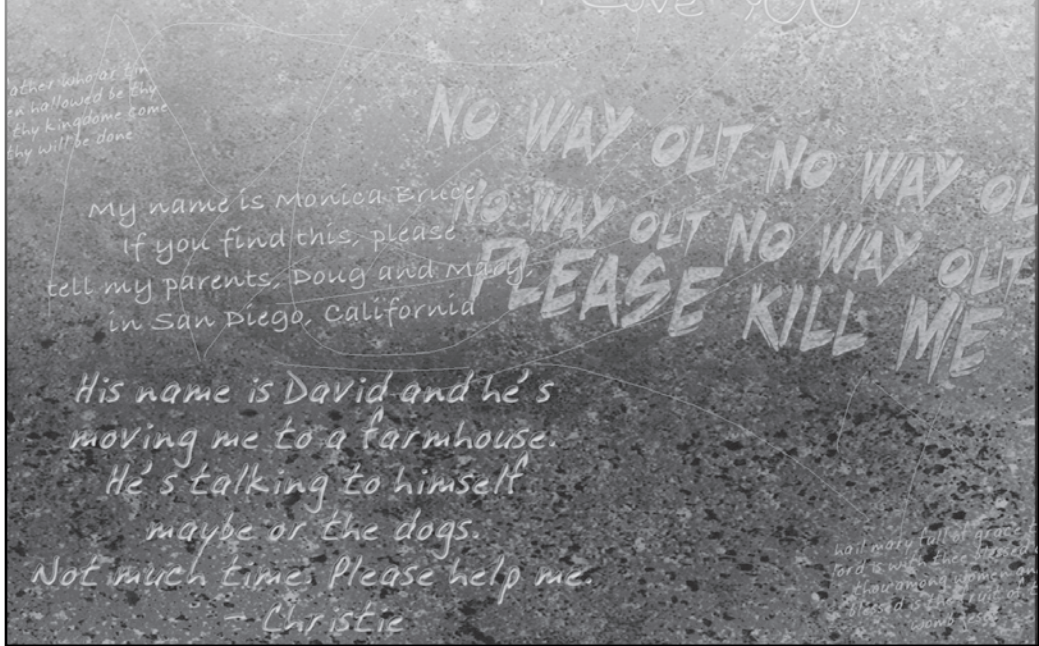 I Love YOU
other who art in
hallowed be thy
thy kingdome come
thy will be done
NO WAY OUT NO WAY
NO WAY OUT NO WAY OUT
PLEASE KILL ME
My name is Monica Bruce
If you find this, please
tell my parents, Doug and Mary,
in San Diego, California
His name is David and he's
moving me to a farmhouse.
He's talking to himself
maybe or the dogs.
Not much time. Please help me.
- Christie
hail mary full of grace
lord is with thee blessed
thou among women
blessed is the fruit of
womb